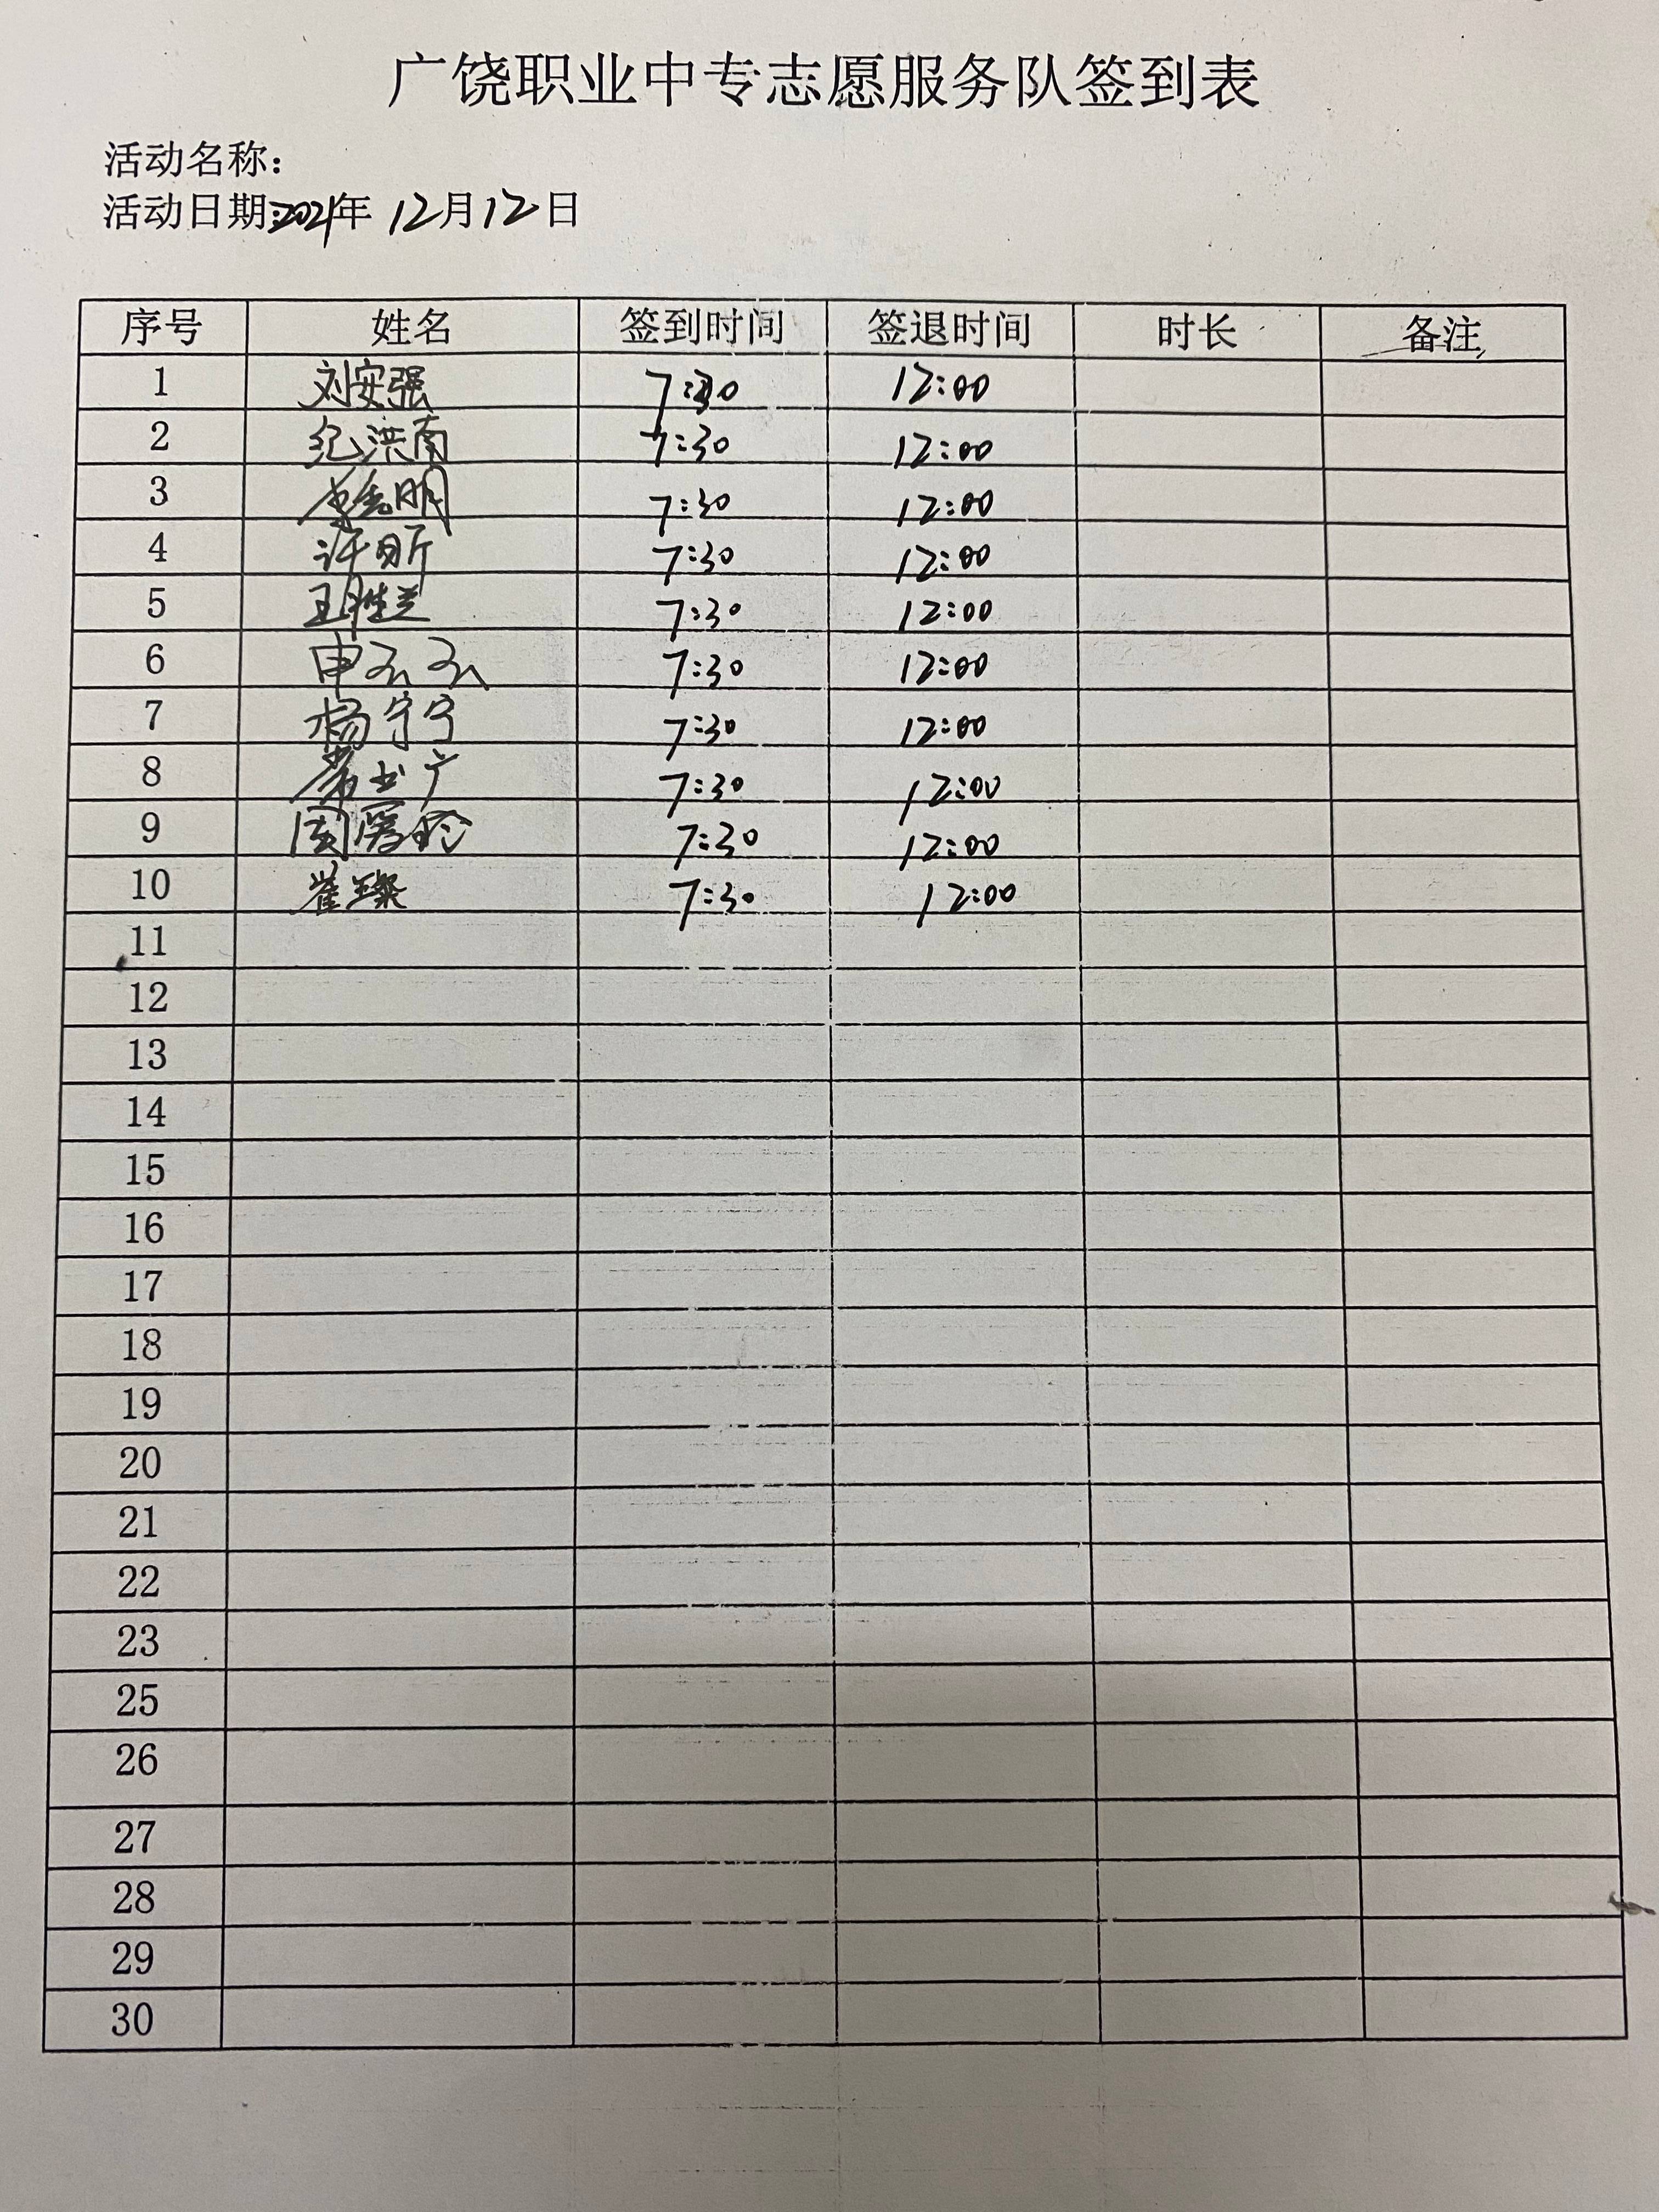 广饶职业中专志愿服务队签到表
活动名称:
活动日期:2021年 12月12日
序号 姓名 签到时间 签退时间 时长 备注
1 刘安强 7:30 12:00
2 纪洪南 7:30 12:00
3 7:30 12:00
4 许昕 7:30 12:00
5 王胜兰 7:30 12:00
6 申云云 7:30 12:00
7 杨宁宁 7:30 12:00
8 7:30 12:00
9 7:30 12:00
10 崔璨 7:30 12:00
11
12
13
14
15
16
17
18
19
20
21
22
23
25
26
27
28
29
30